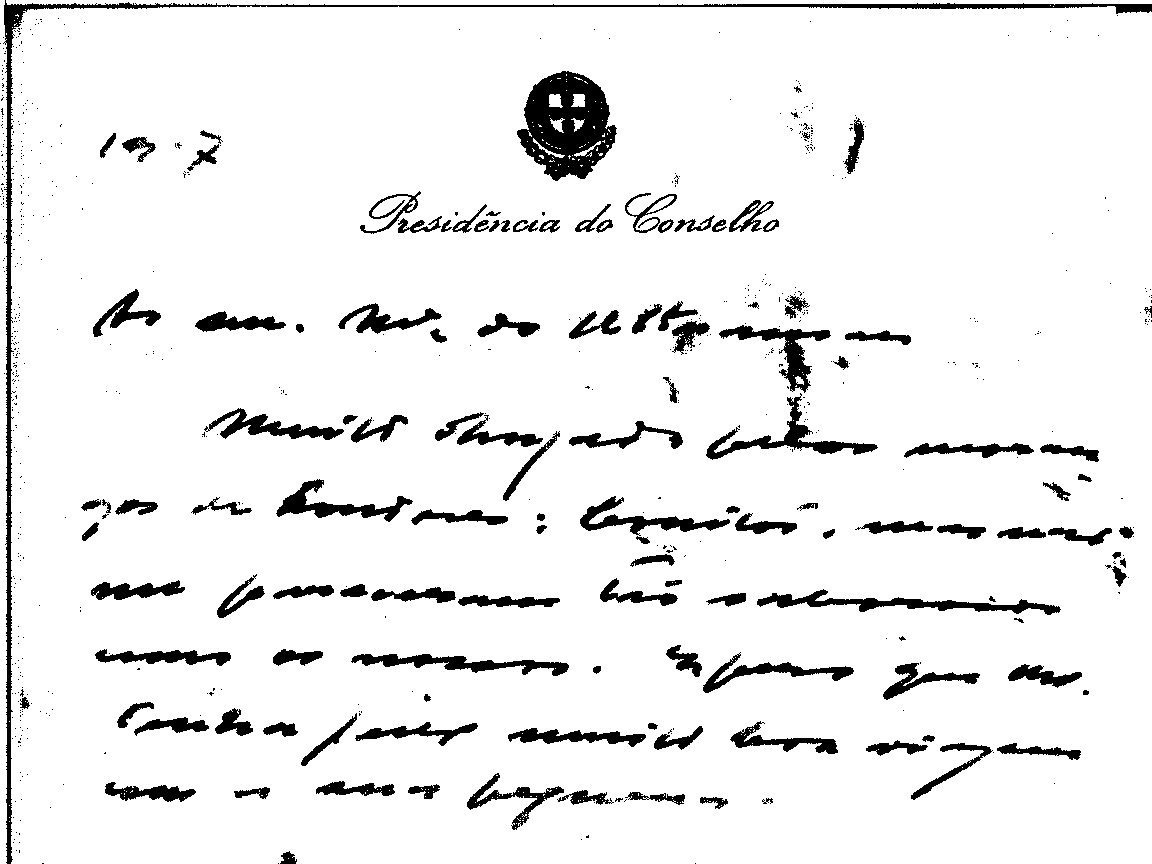 19-7
Presidência do Conselho
Ao sr. Min. do Ultramar
Muito obrigado pelos moran
gos de Londres: bonitos, mas não
me pareceram tão saborosos
como os nossos. Espero que
tenha feito muito boa viagem
com o seu